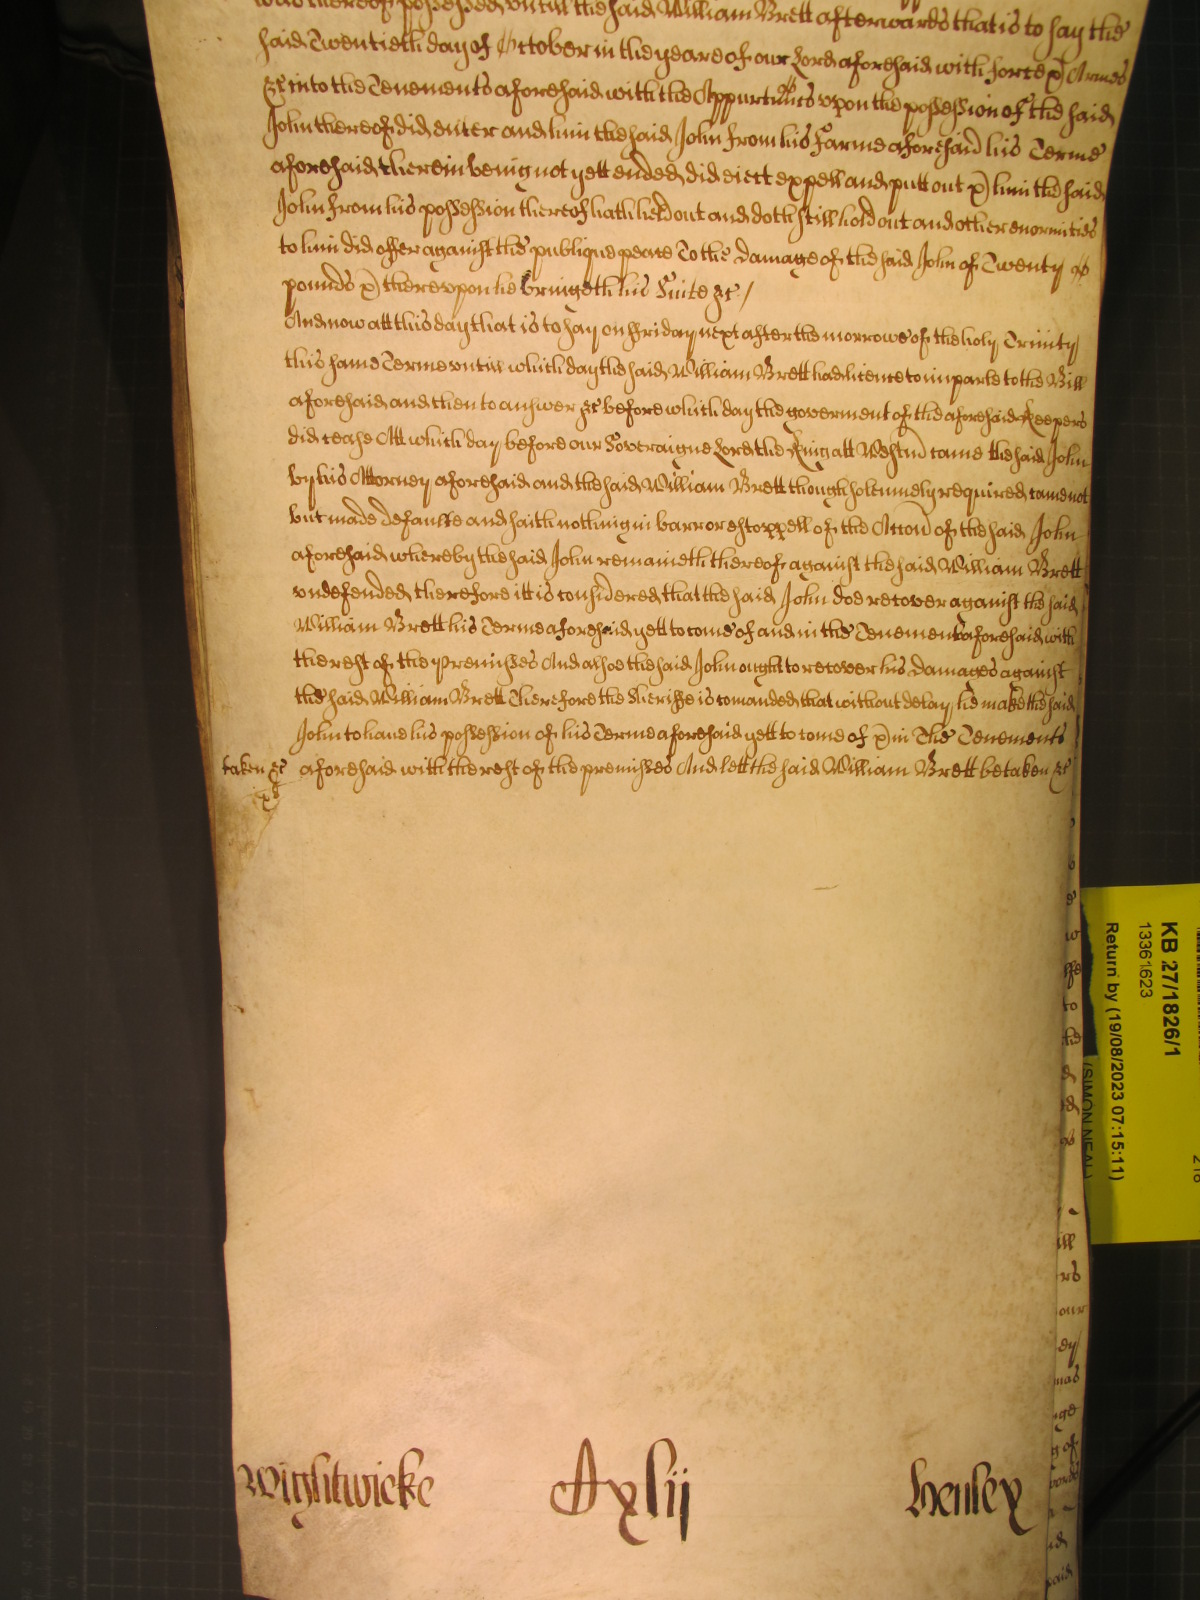 was thereof possessed, untill the said William Brett afterwards that is to say the
said Twentieth day of October in the yeare of our Lord aforesaid with force & Armes
&c into the Tenements aforesaid with the Appurtnts upon the possession of the said
John thereof did enter and him the said John from his Farme aforesaid his Terme
aforesaid therein being not yett ended, did eiect expell and putt out & him the said
John from his possession thereof hath held out and doth still hold out and other enormities
to him did offer against the publique peace To the Damage of the said John of Twenty
pounds & thereupon he bringeth his Suite &c /
And now att this day that is to say on Friday next after the morrowe of the holy Trinity
this same Terme untill which day the said William Brett had licence to imparle to the Bill
aforesaid and then to answer &c before which day the goverment of the aforesaid Keepers
did cease Att which day before our Soveraigne Lord the King att Westm came the said John
by his Attorney aforesaid and the said William Brett though solemnely required came not
but made defaulte and saith nothing in barr or estoppell of the Accon of the said John
aforesaid whereby the said John remaineth thereof against the said William Brett
undefended, therefore itt is considered that the said John doe recover against the said
William Brett his Terme aforesaid yett to come of and in the Tenements aforesaid with
the rest of the premisses And alsoe the said John ought to recover his Damages against
the said William Brett Therefore the Sheriffe is comanded that without delay he make the said
John to have his possession of his Terme aforesaid yett to come of & in The Tenements
taken &c aforesaid with the rest of the premisses And lett the said William Brett be taken &c
Wightwicke Axlij Henley
KB 27/1826/1
13361623
Return by (19/08/2023 07:15:11)
(SIMON NEAL)